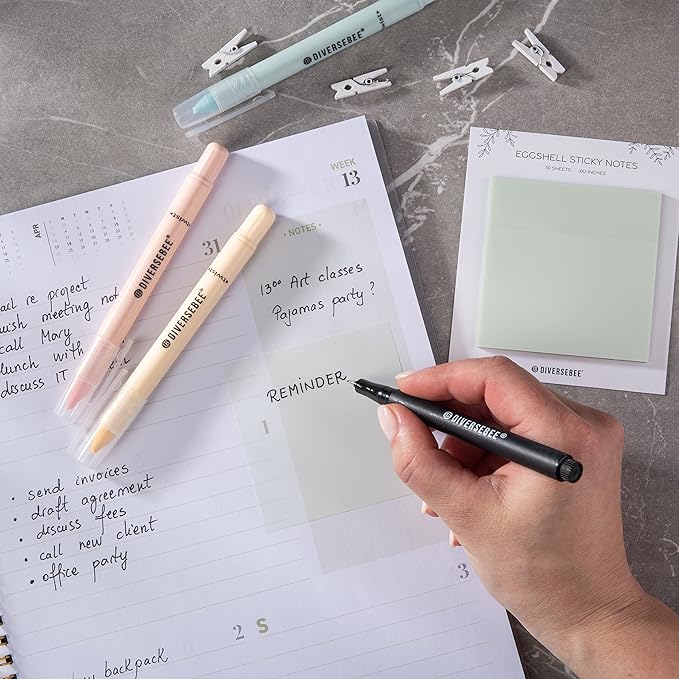 DIVERSEBEE
EGGSHELL STICKY NOTES
50 SHEETS 3X3 INCHES
DIVERSEBEE
WEEK
13
31
• NOTES •
13⁰⁰ Art classes
Pajamas party ?
REMINDER
DIVERSEBEE
DIVERSEBEE
DIVERSEBEE
APR
re project
meeting
call Mary
with
discuss IT
1
• send invoices
• draft agreement
• discuss fees
• call new client
• office party
2 S
3
backpack